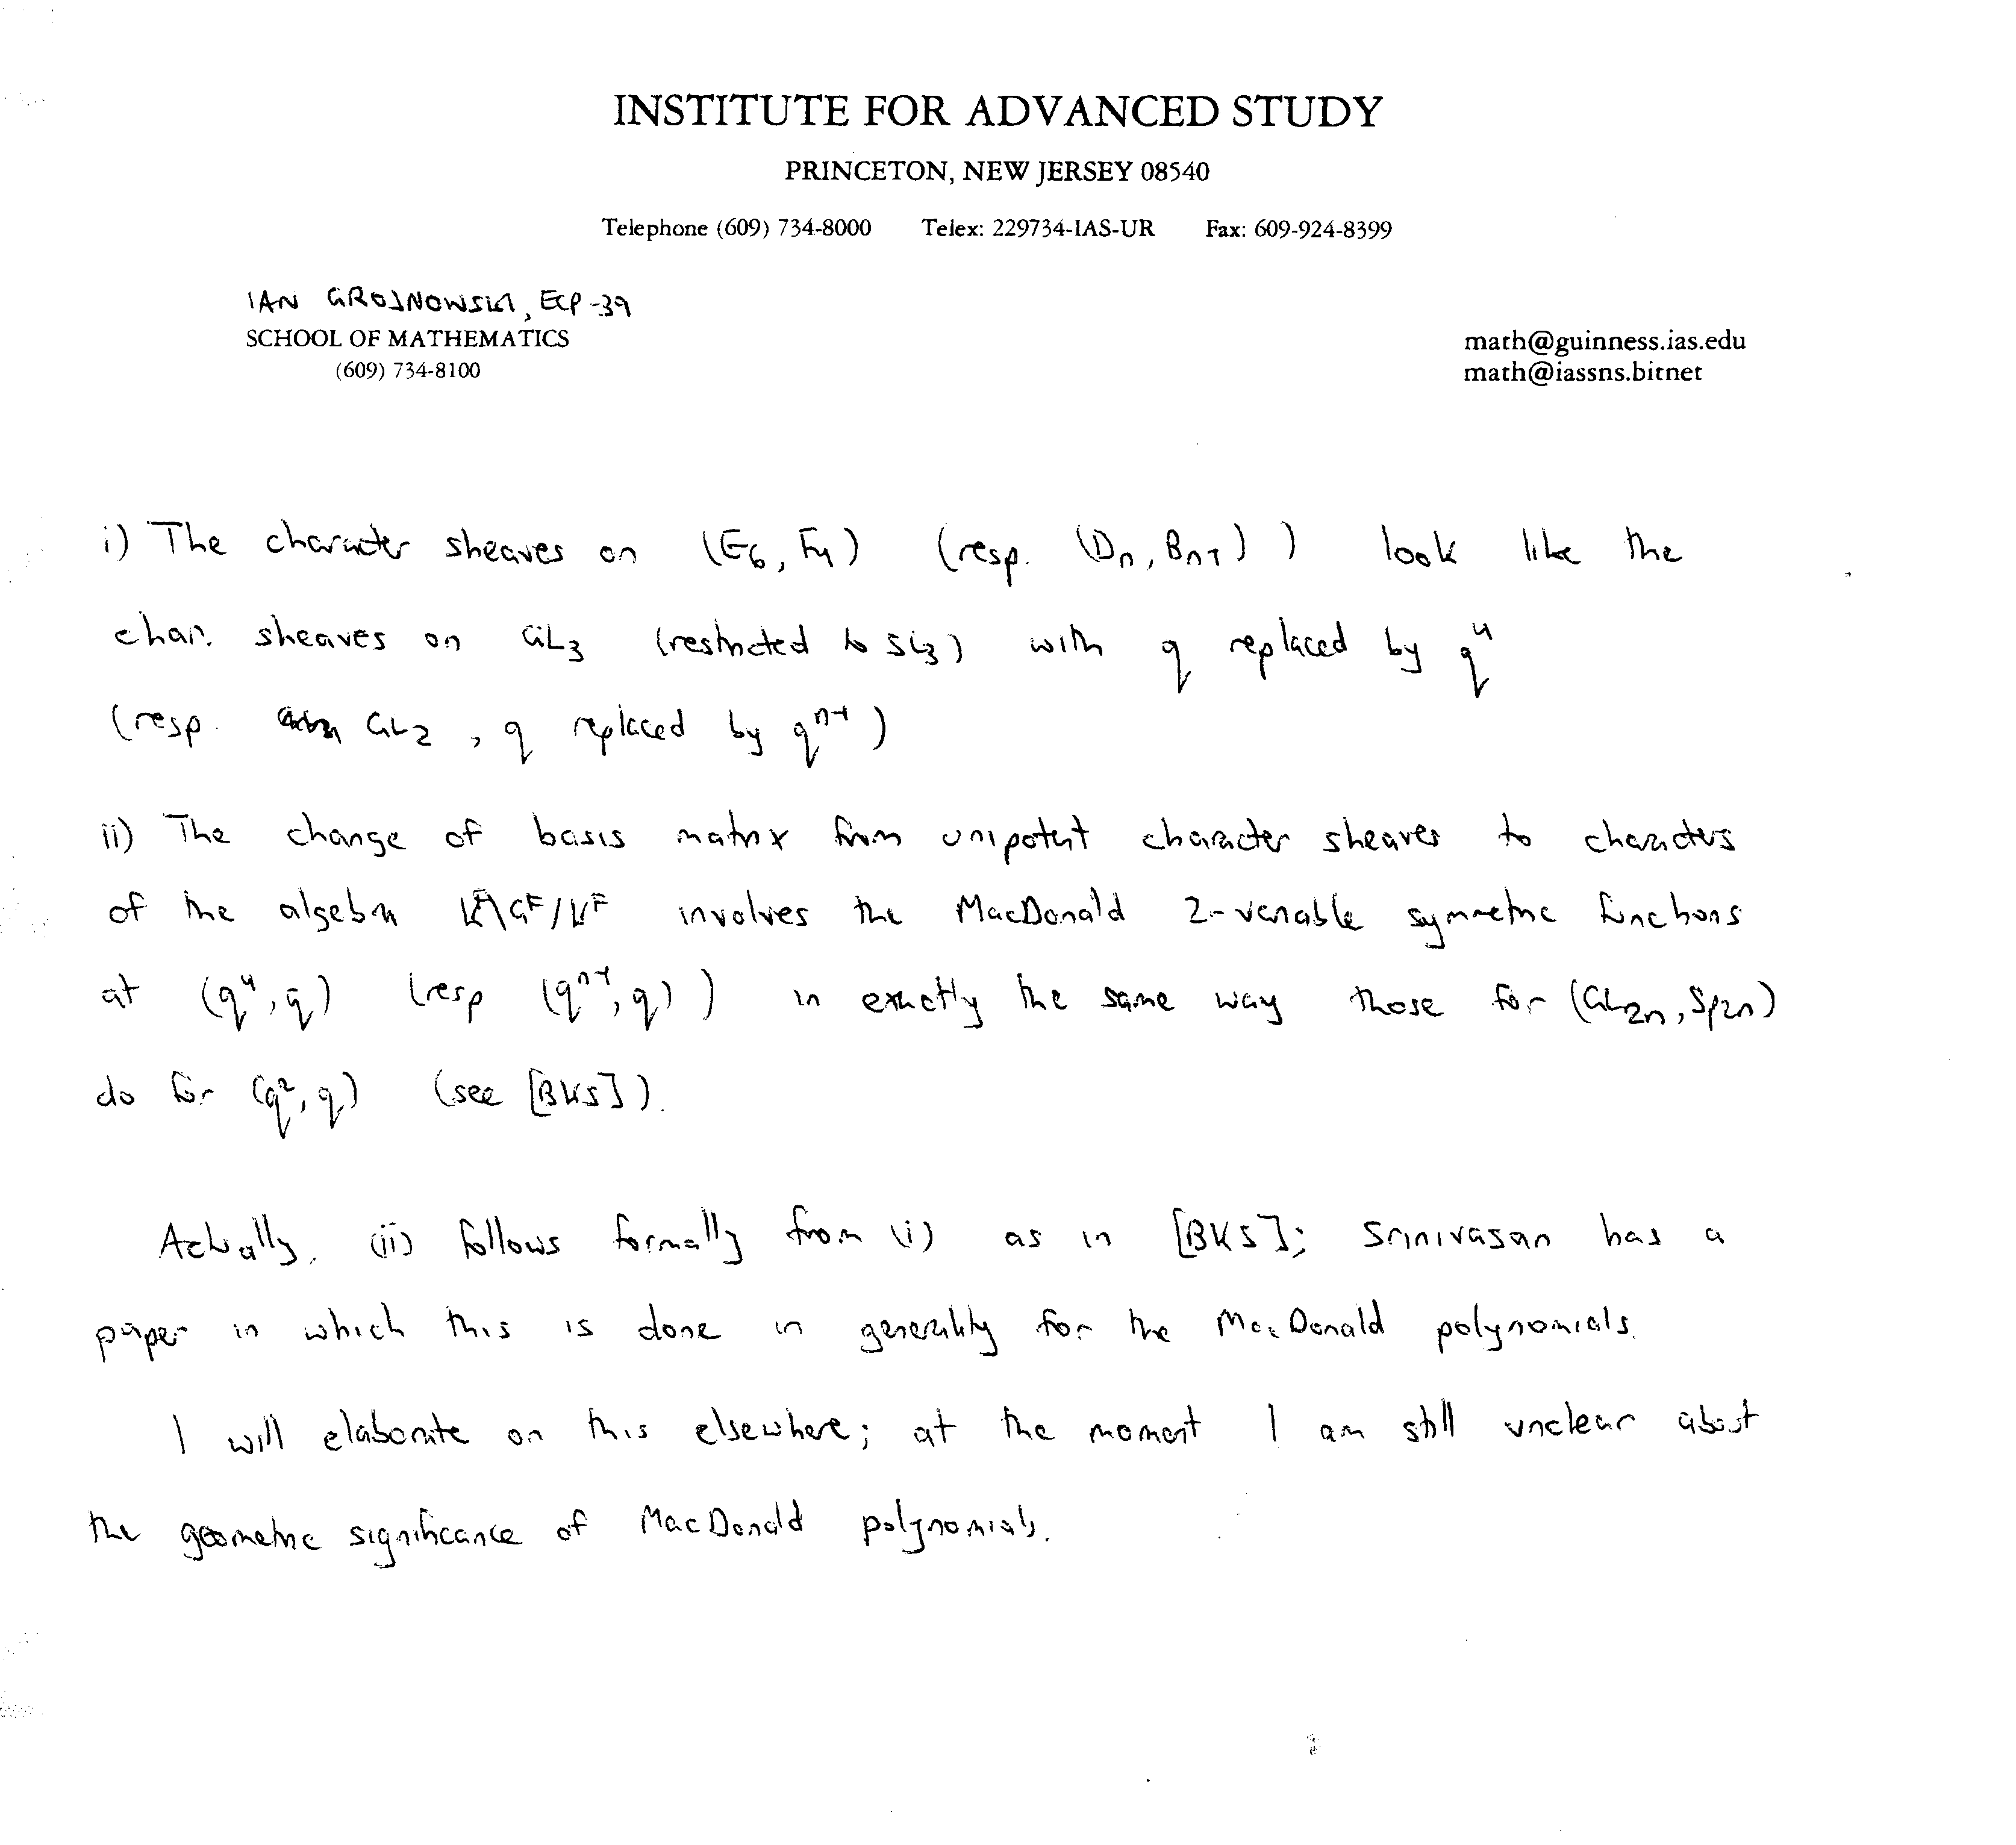 INSTITUTE FOR ADVANCED STUDY
PRINCETON, NEW JERSEY 08540
Telephone (609) 734-8000 Telex: 229734-IAS-UR Fax: 609-924-8399
IAN GROJNOWSKI, ECP-39
SCHOOL OF MATHEMATICS
(609) 734-8100
math@guinness.ias.edu
math@iassns.bitnet
i) The character sheaves on (E₆, F₄) (resp. (Dₙ, Bₙ₋₁)) look like the
char. sheaves on GL₃ (restricted to SL₃) with q replaced by q⁴
(resp. GL₂, q replaced by qⁿ⁻¹)
ii) The change of basis matrix from unipotent character sheaves to characters
of the algebra Kᶠ\Gᶠ/Kᶠ involves the MacDonald 2-variable symmetric functions
at (q⁴, q) (resp (qⁿ⁻¹, q)) in exactly the same way those for (GL₂ₙ, Sp₂ₙ)
do for (q², q) (see [BKS]).
Actually, (ii) follows formally from (i) as in [BKS]; Srinivasan has a
paper in which this is done in generality for the MacDonald polynomials.
I will elaborate on this elsewhere; at the moment I am still unclear about
the geometric significance of MacDonald polynomials.